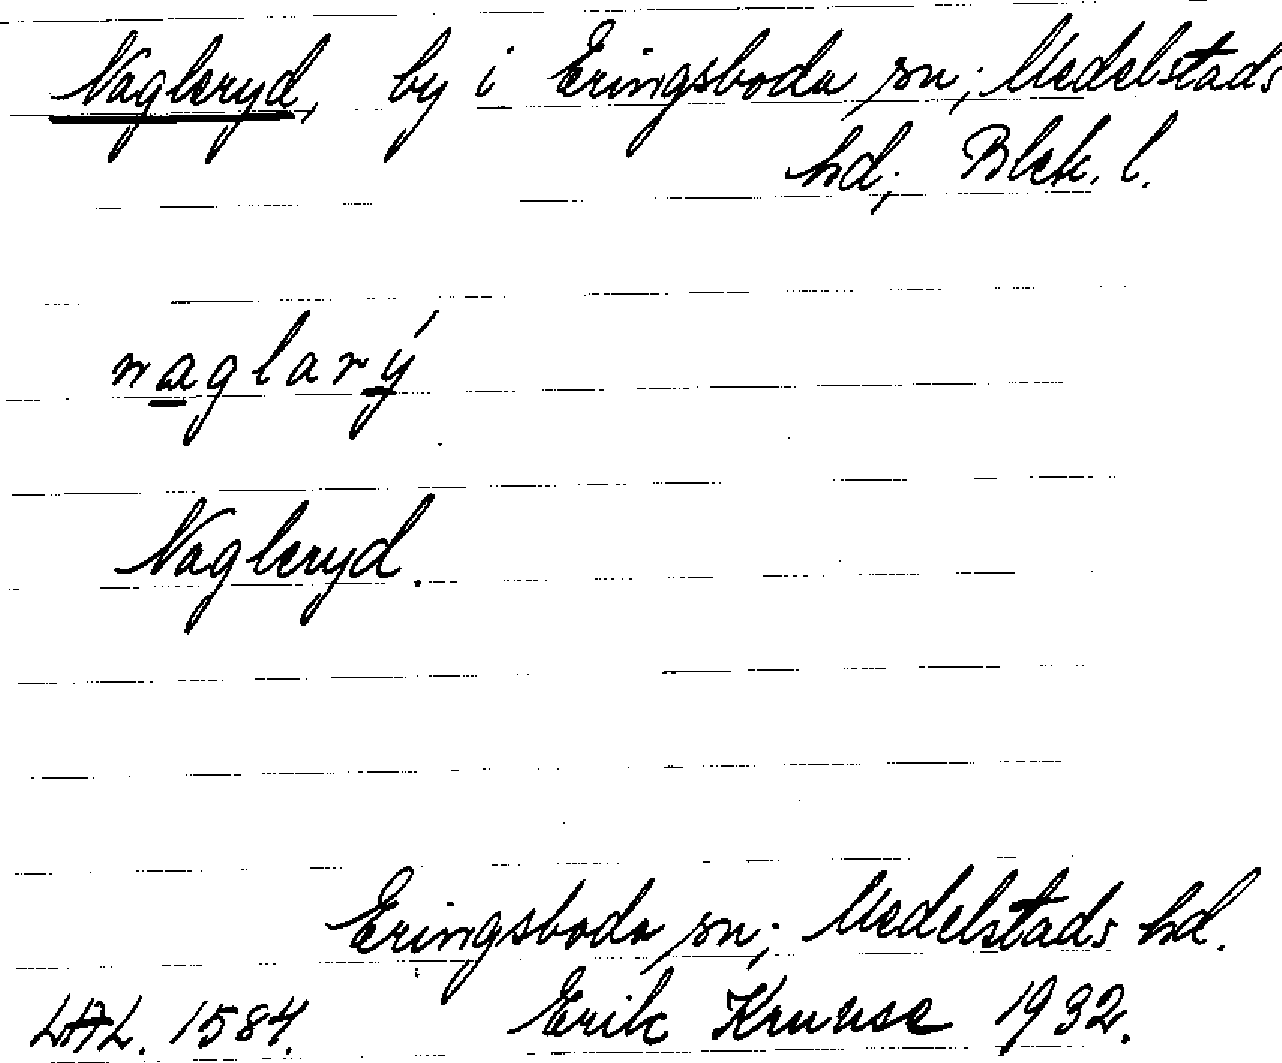 Nagleryd, by i Eringsboda sn; Medelstads
hd; Blek. l.
naglarý
Nagleryd.
Eringsboda sn; Medelstads hd.
LAL. 1584. Erik Kruuse 1932.